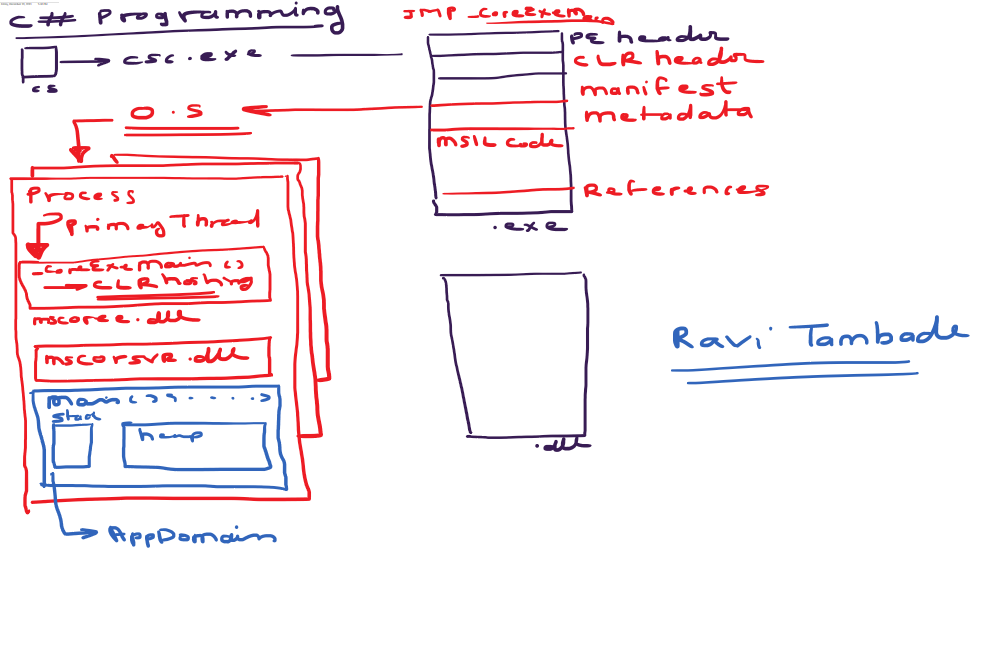 C# Programming
JMP _CoreExeMain
cs
csc.exe
PE header
CLR header
manifest
metadata
MSIL code
References
.exe
O.S
Process
Primay Thread
_CoreExeMain()
CLR hosting
mscoree.dll
mscorsvr.dll
main() { . . . . . }
stack
heap
AppDomain
.dll
Ravi Tambade